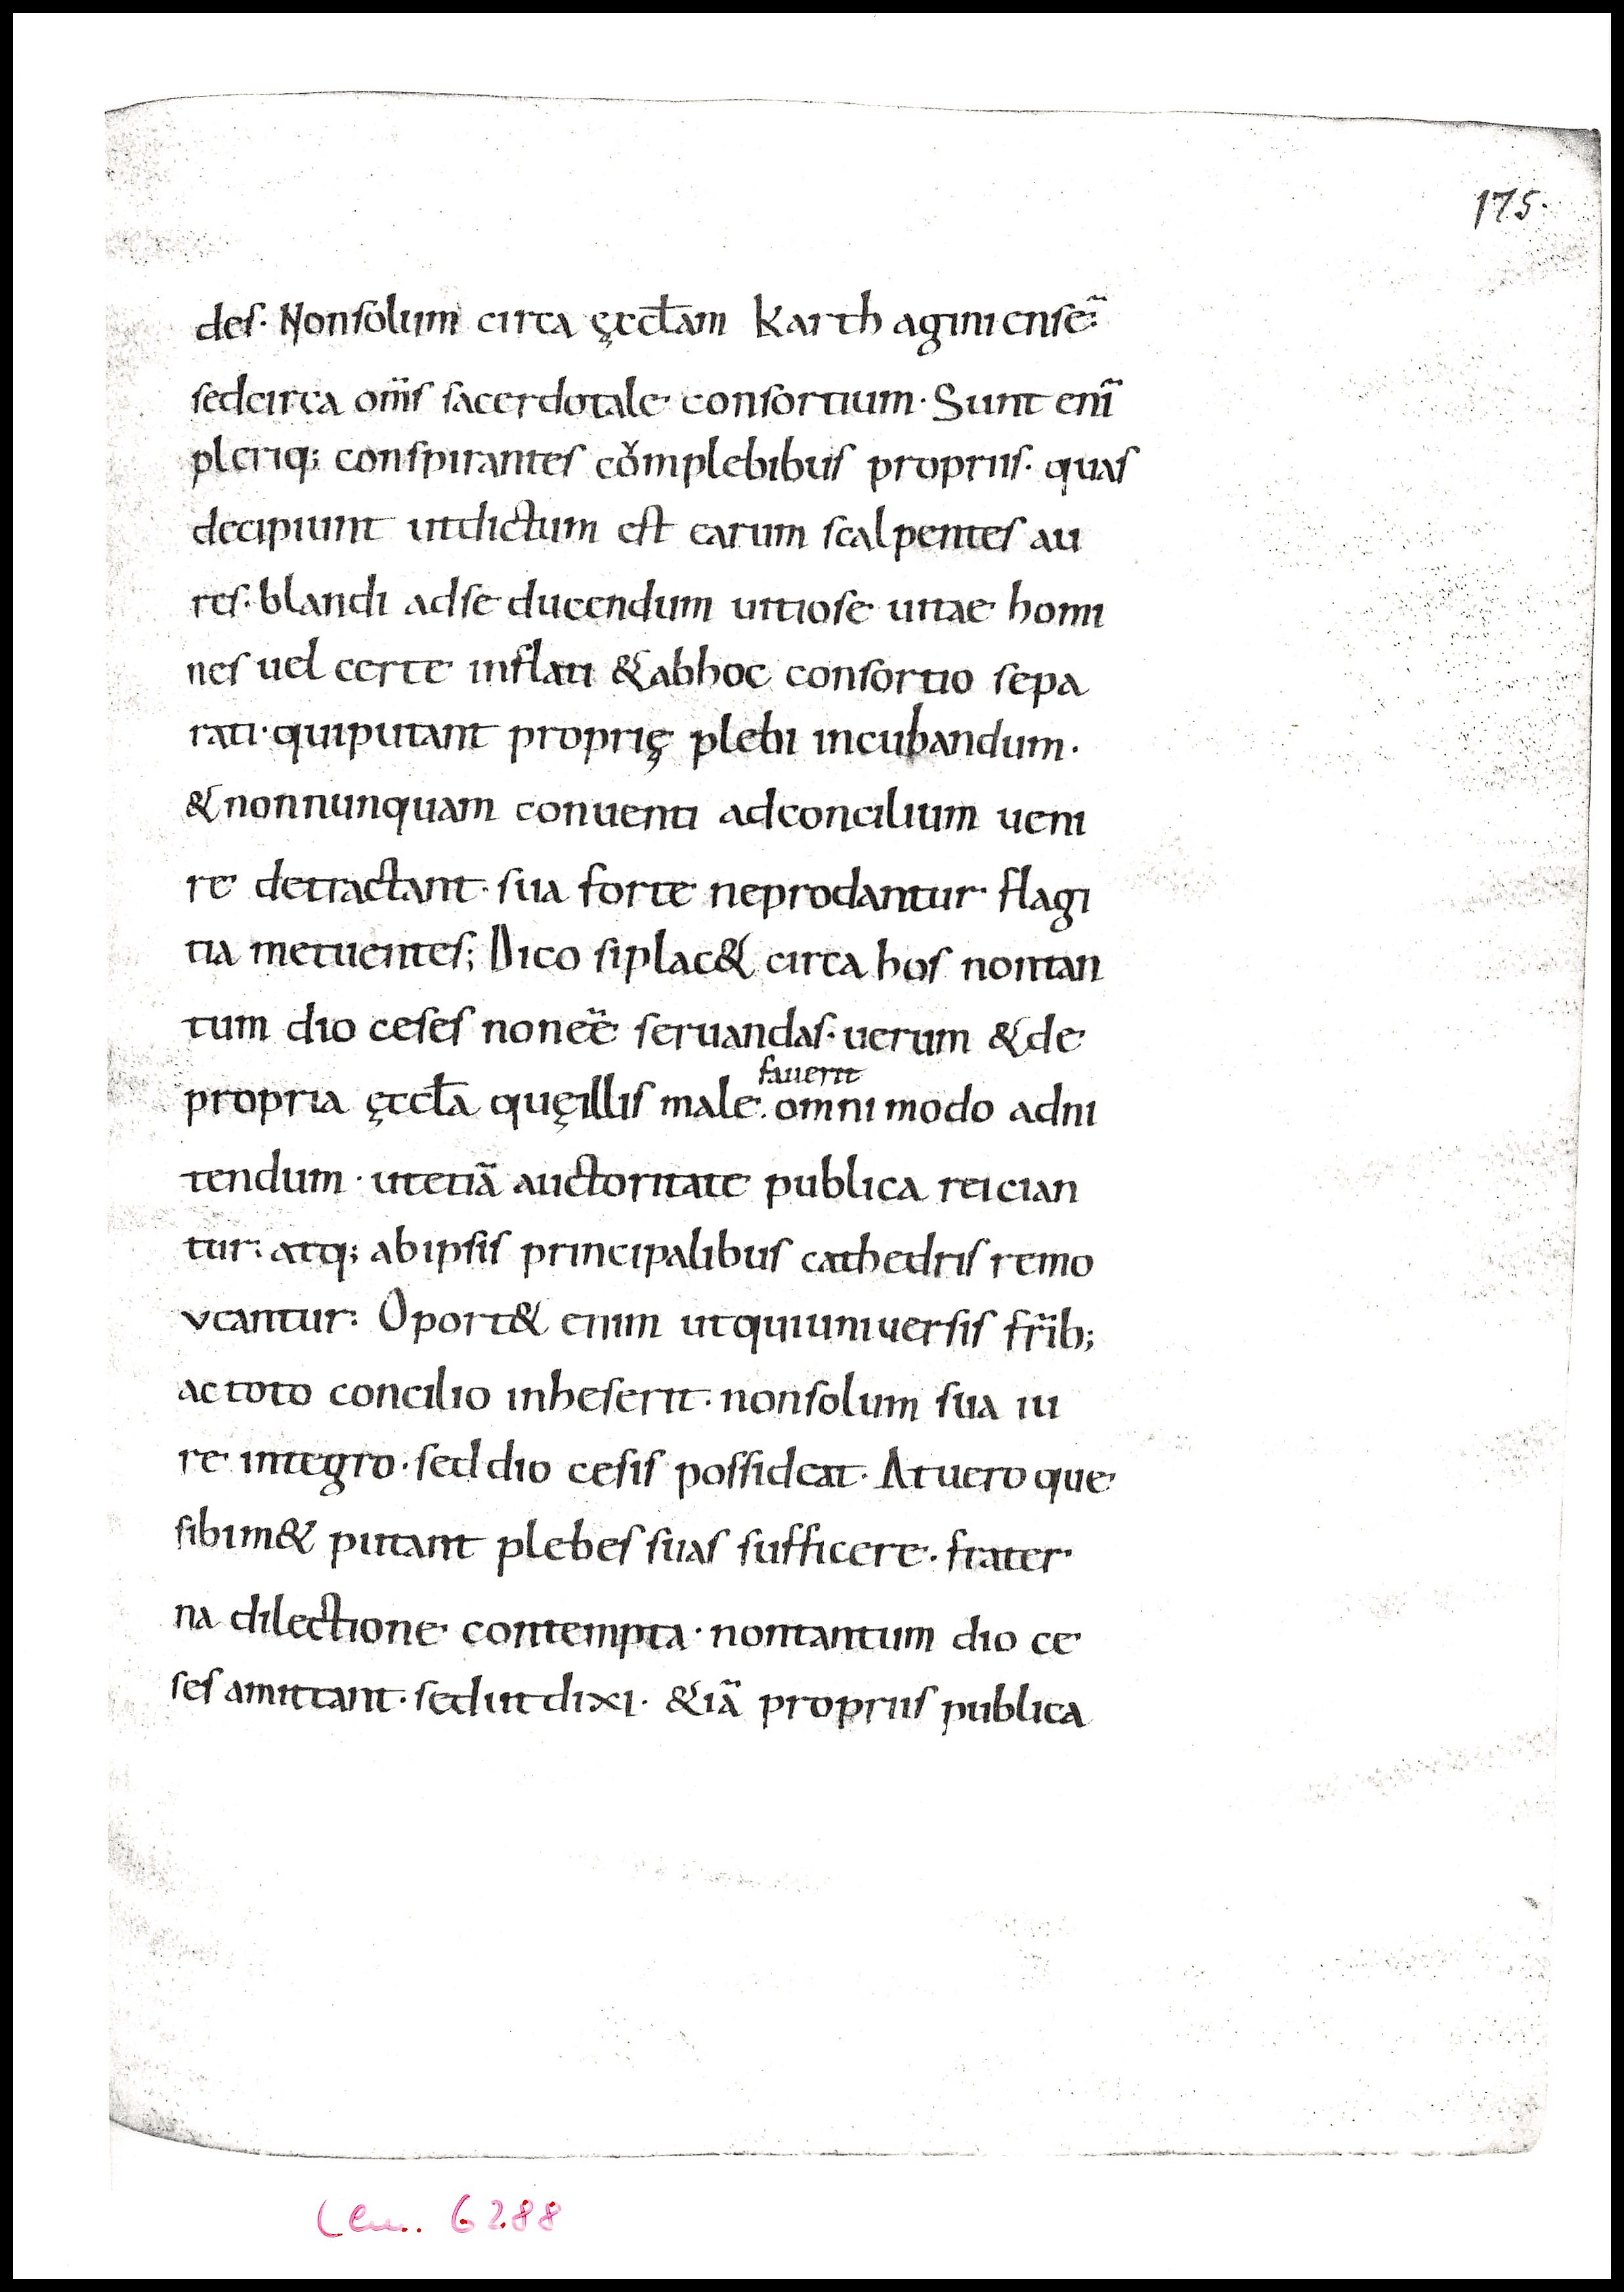 175.
des. Nonsolum circa ęccl̄am karth aginiensẽ:
sedcirca om̅s sacerdotale consortium. Sunt enĩ
pleriq; conspirantes cǒmplebibus propriis. quas
decipiunt utdictum est earum scalpentes au
res. blandi adse ducendum uitiose uitae homi
nes uel certe inflati &abhoc consortio sepa
rati. quiputant proprię plebi incubandum.
&nonnunquam conuenti adconcilium ueni
re detractant. sua forte neprodantur flagi
tia metuentes; Dico siplac& circa hos nontan
tum dio ceses noneẽ seruandas. uerum &de
fauerit
propria ęccl̄a quęillis male. omni modo adni
tendum. utetiã auctoritate publica reician
tur: atq; abipsis principalibus cathedris remo
veantur: Oport& enim utquiuniuersis fr̃ib;
ac toto concilio inheserit. nonsolum sua iu
re integro. sed dio cesis possideat. At uero que
sibim& putant plebes suas sufficere. frater
na dilectione contempta. nontantum dio ce
ses amittant. sedutdixi. &iã propriis publica
6288